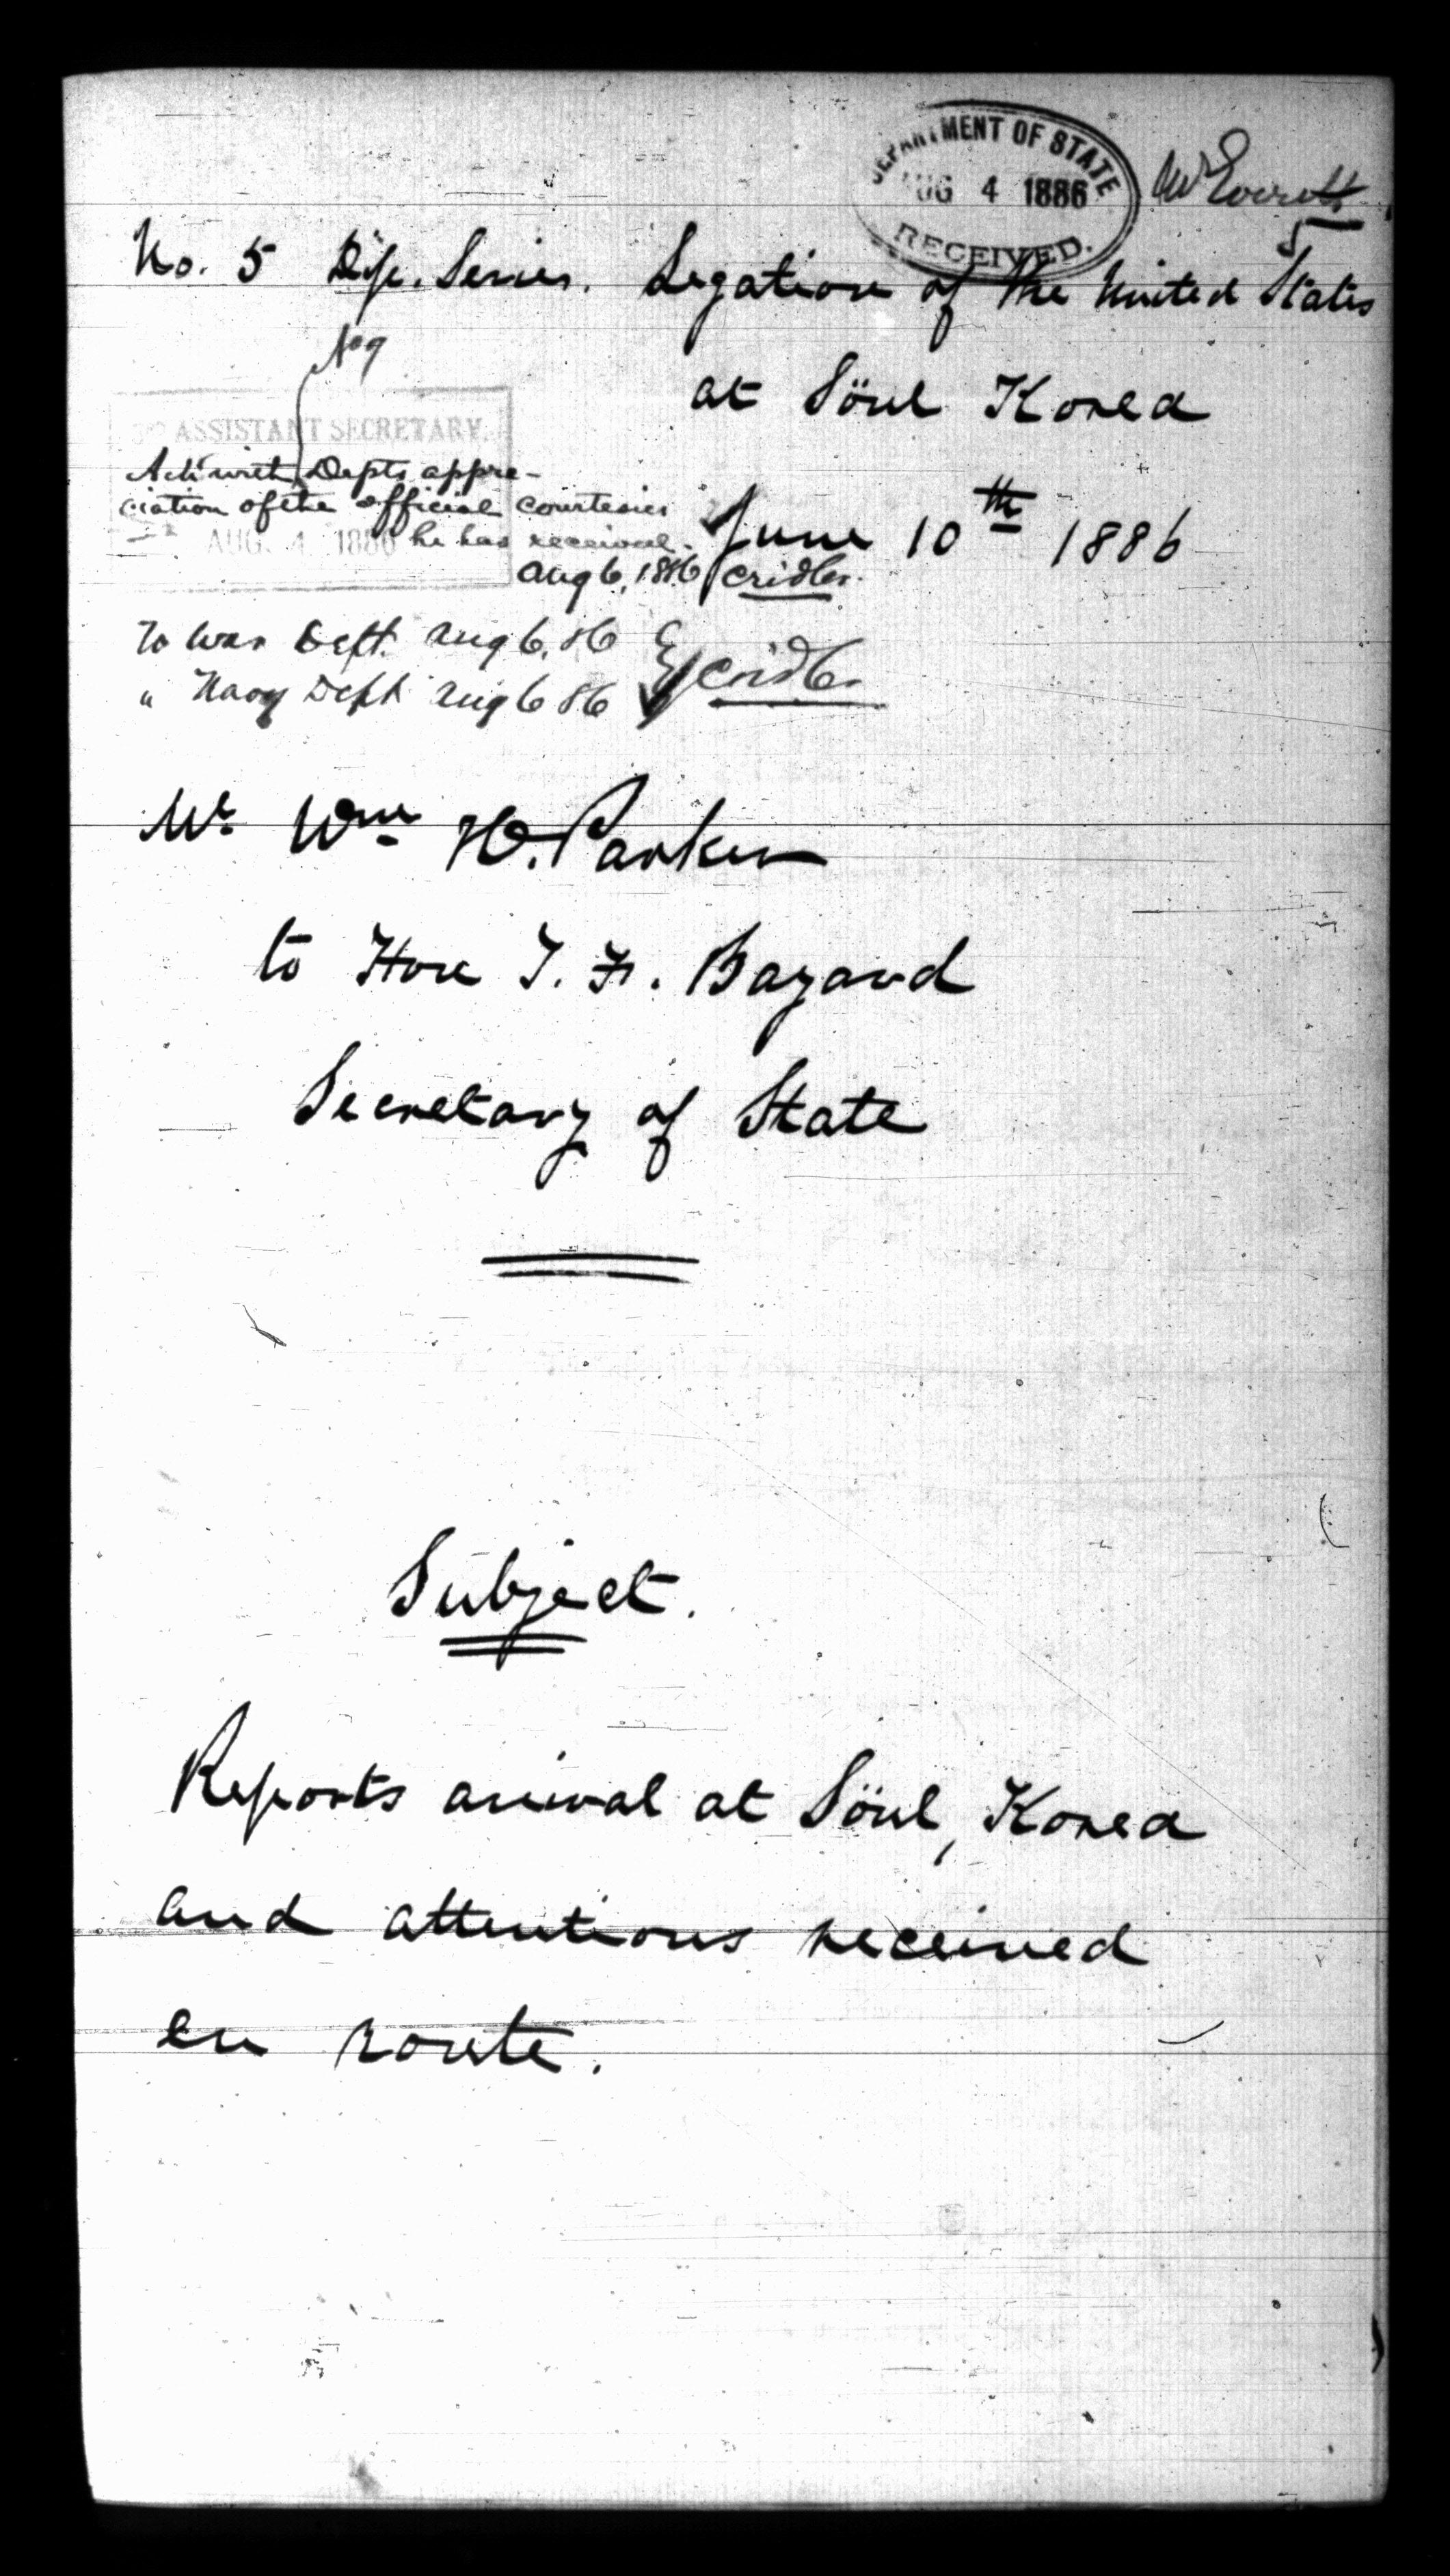 DEPARTMENT OF STATE
AUG 4 1886
RECEIVED.
Mr Everett
5
No. 5 Dip. Series. Legation of the United States
No 9
at Söul Korea
ASSISTANT SECRETARY.
Ack with Depts appre-
ciation of the official courtesies
he has received.
AUG. 4 1886
June 10th 1886
Aug 6, 1886 Cridler.
To War Dept. Aug 6, 86
" Navy Dept Aug 6 86
Cridler
Mr Wm H. Parker
to Hon T. F. Bayard
Secretary of State
Subject.
Reports arrival at Söul, Korea
and attentions received
en route.